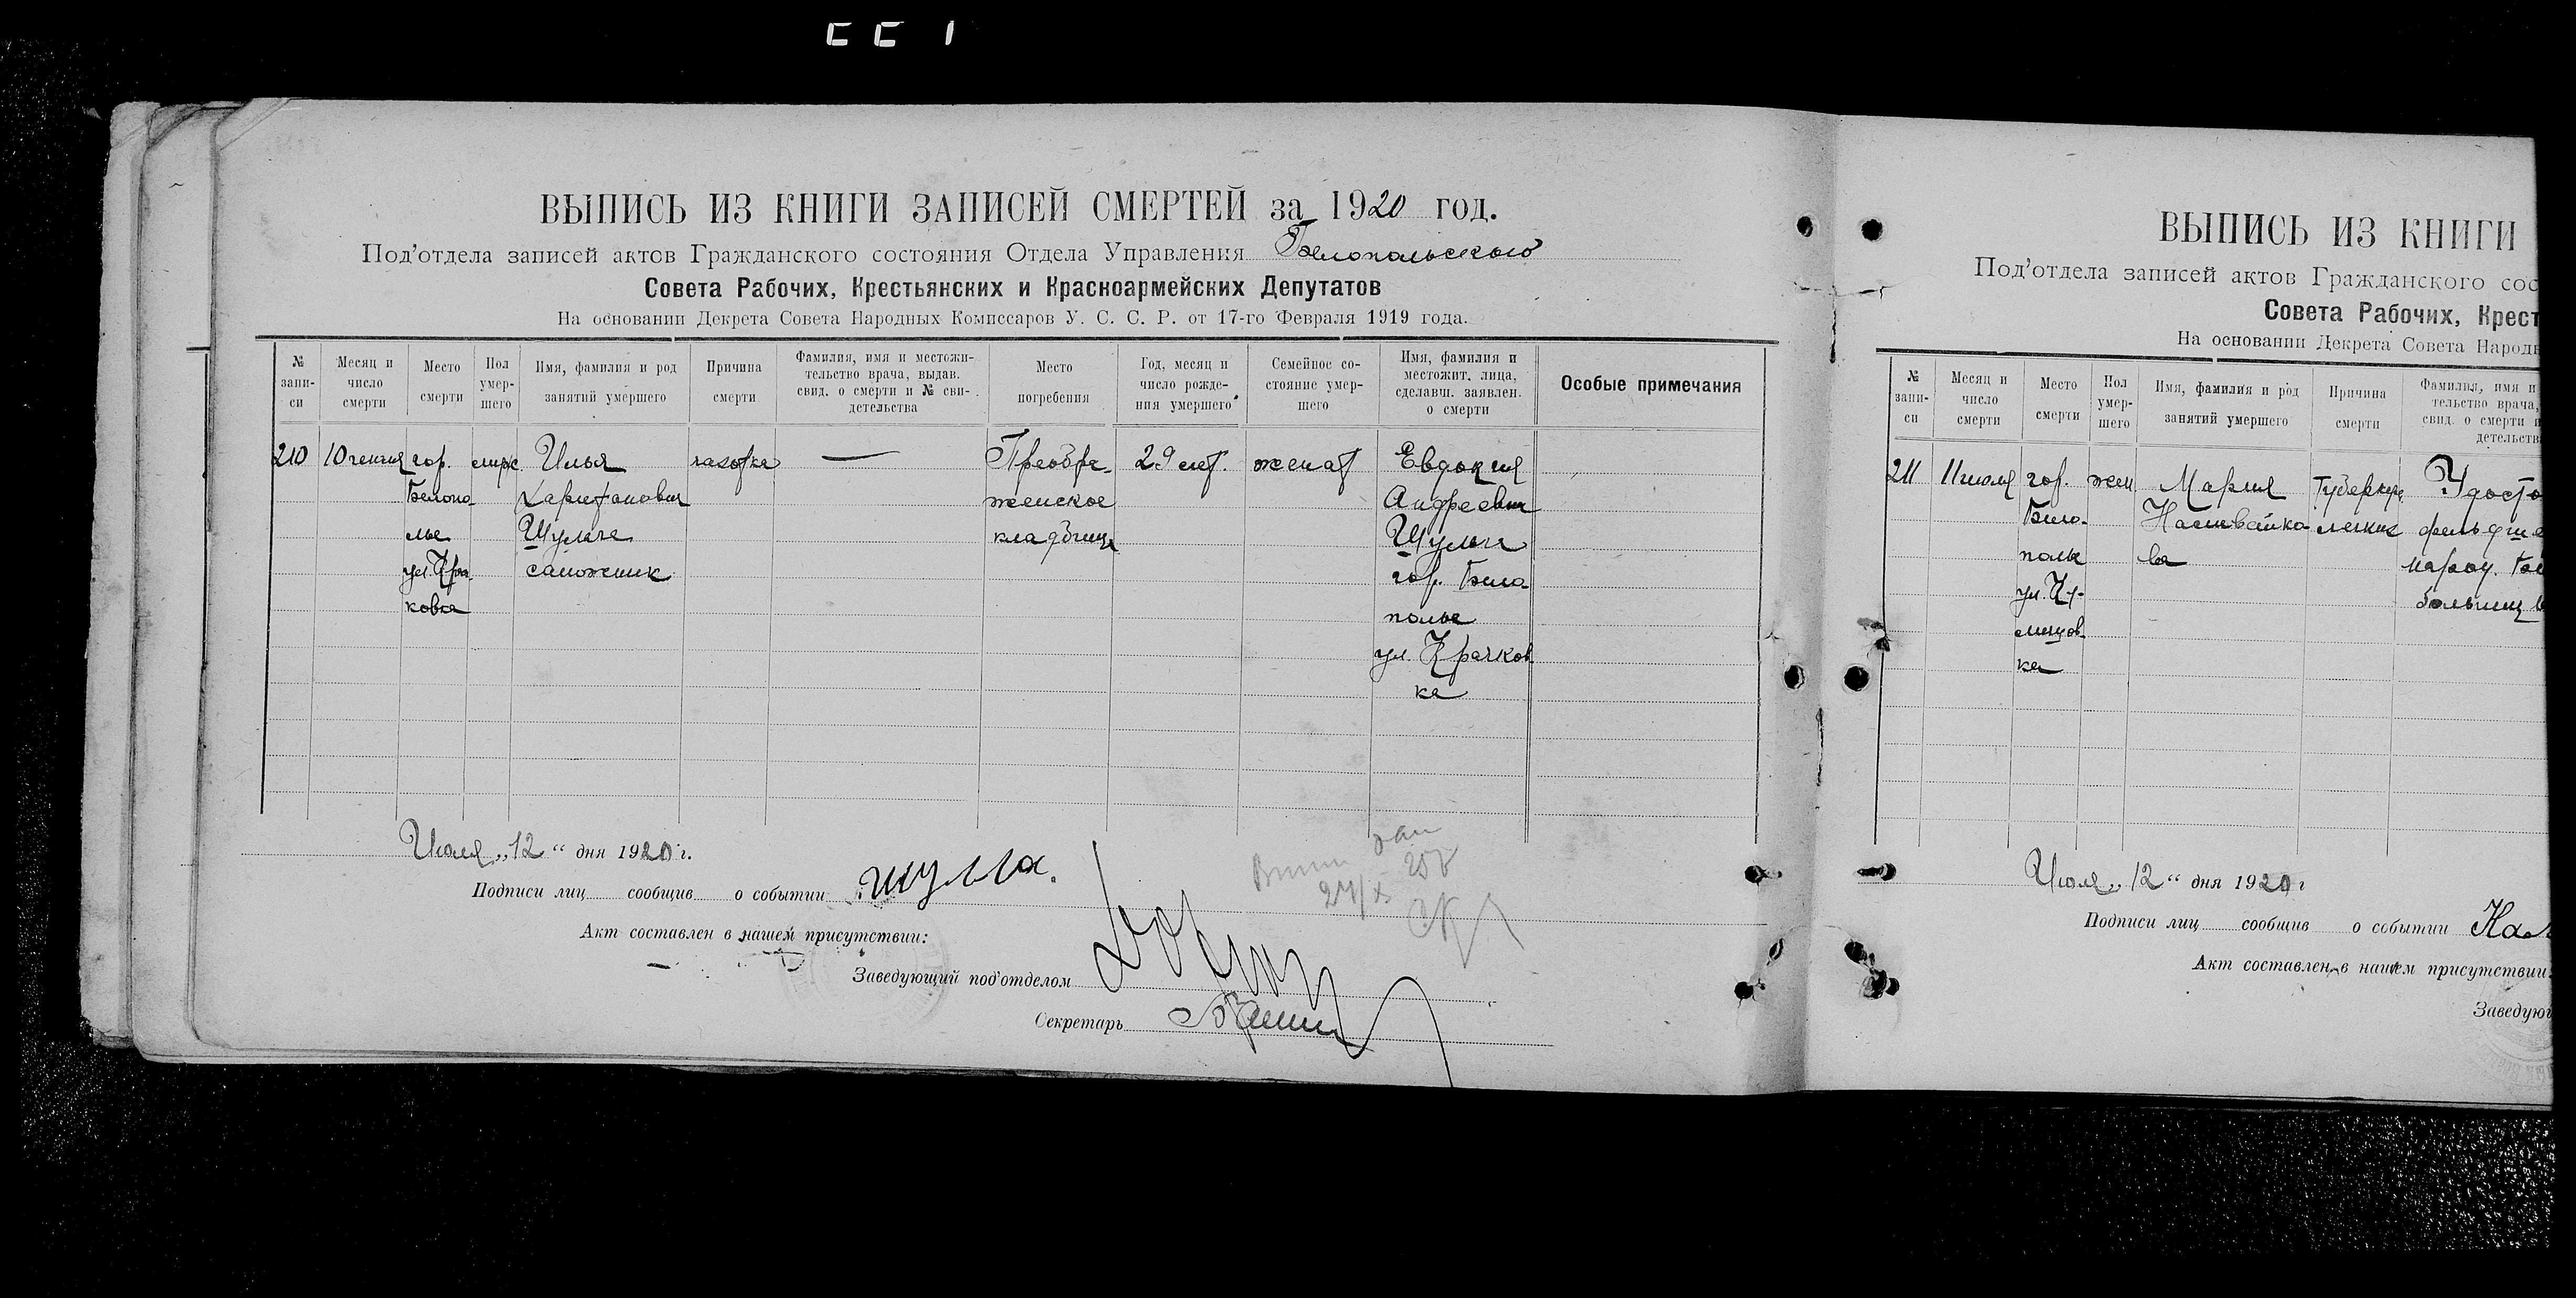 ВЫПИСЬ ИЗ КНИГИ ЗАПИСЕЙ СМЕРТЕЙ за 1920 год.
Под'отдела записей актов Гражданского состояния Отдела Управления Белопольского
Совета Рабочих, Крестьянских и Красноармейских Депутатов
На основании Декрета Совета Народных Комиссаров У. С. С. Р. от 17-го Февраля 1919 года.
№ запи-си
Месяц и число смерти
Место смерти
Пол умер-шего
Имя, фамилия и род занятий умершего
Причина смерти
Фамилия, имя и местожи-тельство врача, выдав. свид. о смерти и № сви-детельства
Место погребения
Год, месяц и число рожде-ния умершего
Семейное со-стояние умер-шего
Имя, фамилия и местожит. лица, сделавш. заявлен. о смерти
Особые примечания
210
10
гор.
Белопо-
лье
ул. Крач
ковка
Илья
Харитонович
Шульга
сапожник
чахотка
—
Преобра-
женское
кладбище
29 лет.
женат
Евдокия
Андреевна
Шульга
гор. Бело-
полье
ул. Крачков
ка
Июля „12“ дня 1920 г.
Подписи лиц сообщив о событии
Акт составлен в нашем присутствии:
Заведующий под'отделом
Секретарь
ВЫПИСЬ ИЗ КНИГИ
Под'отдела записей актов Гражданского сос
Совета Рабочих, Крест
На основании Декрета Совета Народн
№ запи-си
Месяц и число смерти
Место смерти
Пол умер-шего
Имя, фамилия и род занятий умершего
Причина смерти
Фамилия, имя и
тельство врача,
свид. о смерти и
детельств
211
11 июля
гор.
Бело-
полье
ул.
ка
жен
Мария
Наливайко
ва
Туберкул
легких
Удосто
фельдше
народ. Бе
больниц
Июля „12“ дня 1920 г
Подписи лиц сообщив о событии
Акт составлен в нашем присутствии:
Заведую